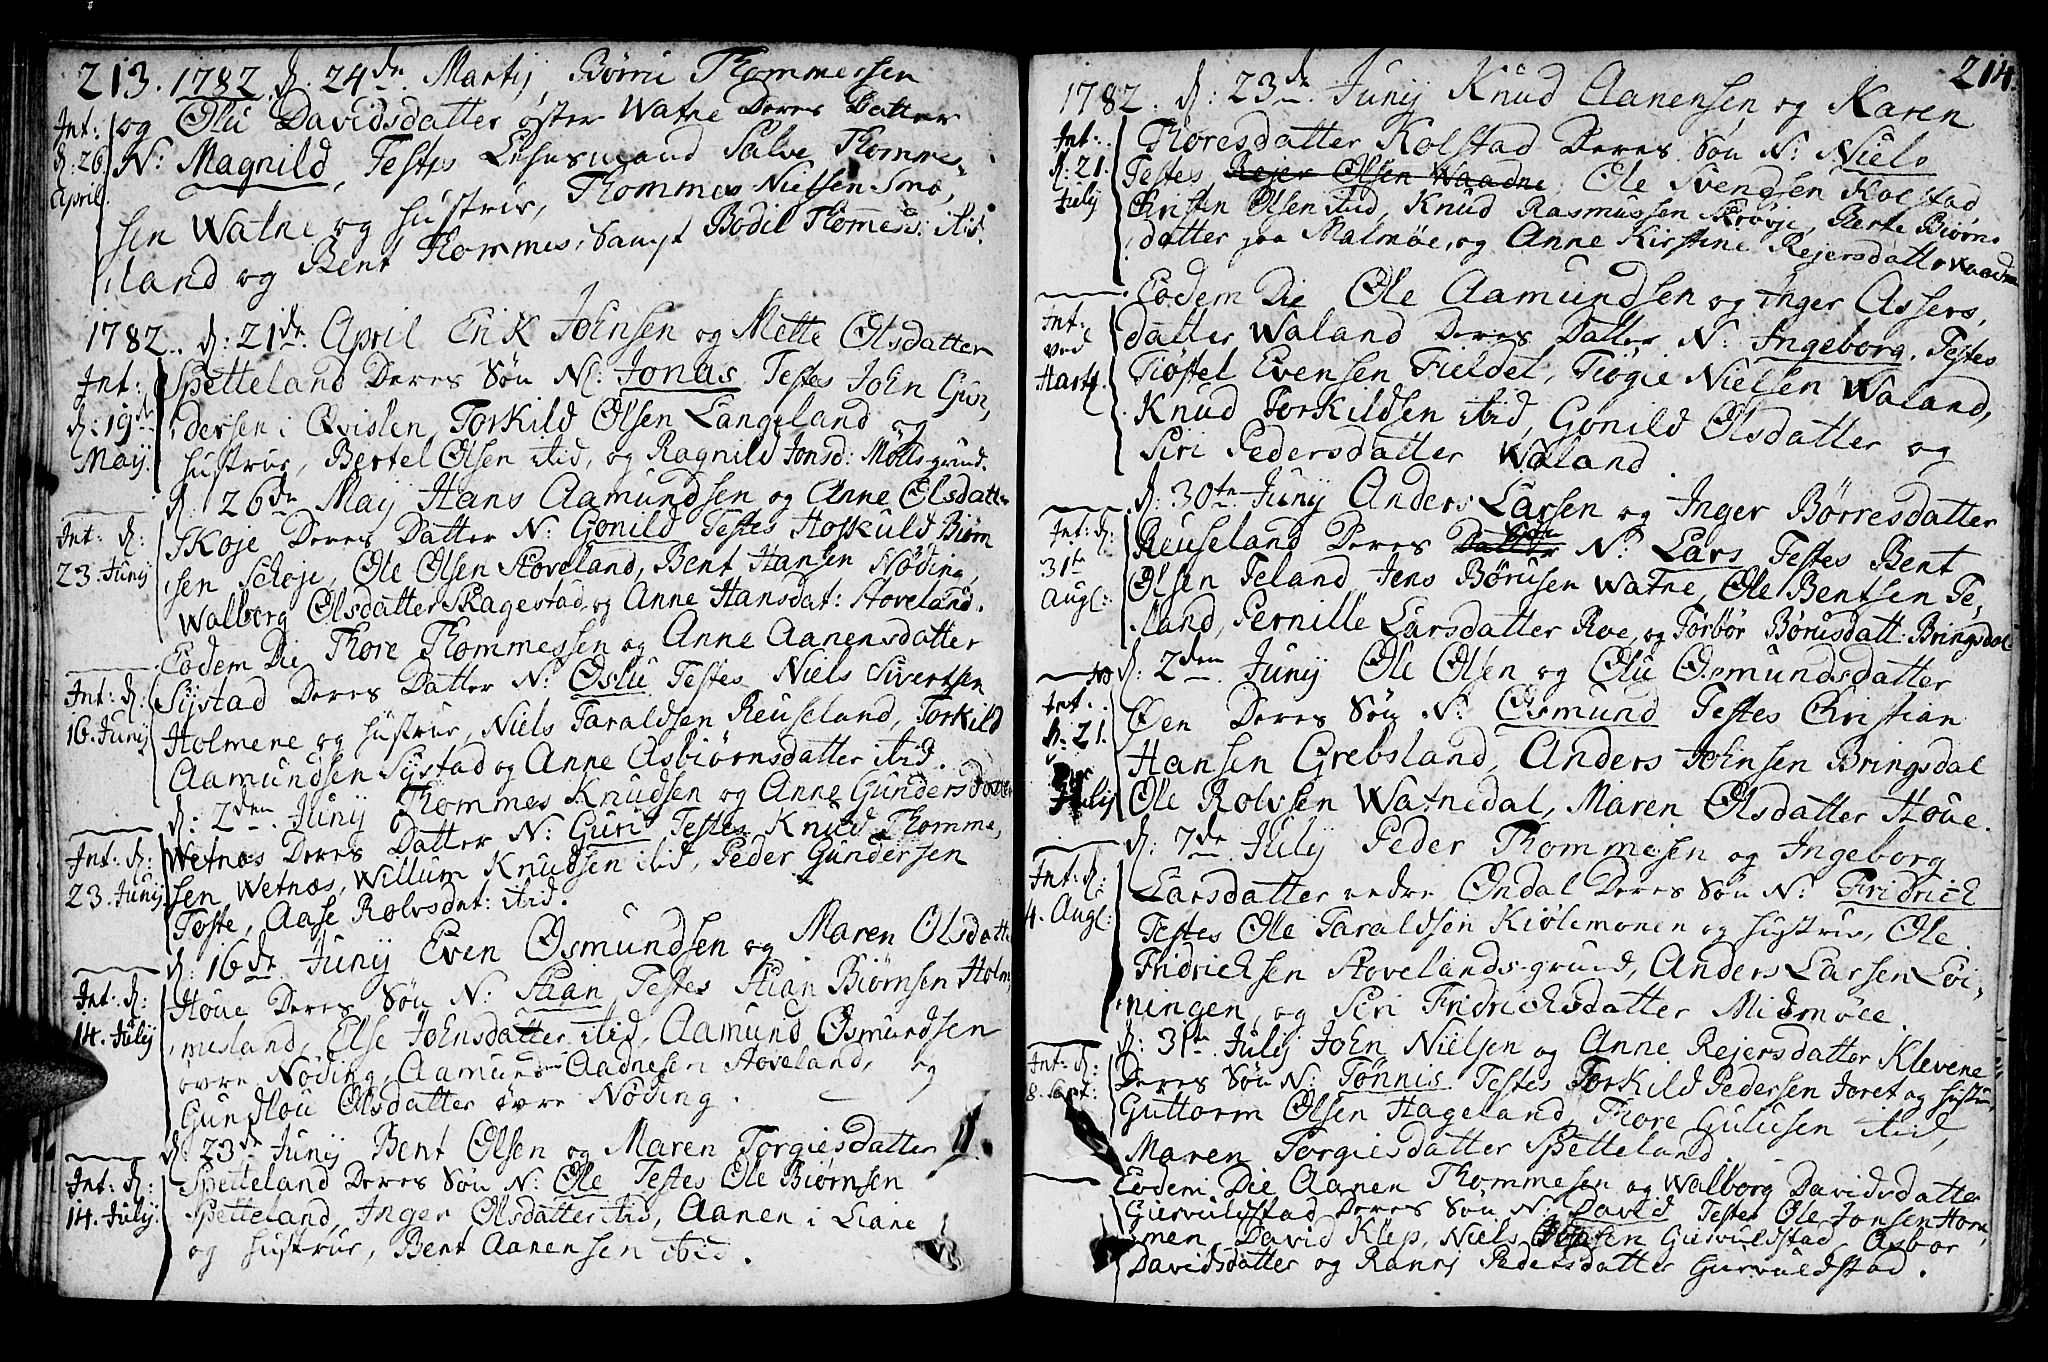 213. 1782. d. 24de Martij, Børru Thommessen
Int: d. 26. April.
og Olu Davidsdatter øster Watne Deres Datter
N: Magnild, Testes Lensmand Salve Thommes-
sen Watne og hustrue, Thommes Nielsen Smø,
land og Bent Thommes: samt Bodil Thommesd:
1782. d: 21de April Erik Johnsen og Mette Olsdatter
Int: d: 19de Maij.
Spetteland Deres Søn N: Jonas, Testes John Gun,
dersen i Qvislen, Torkild Olsen Langeland og
hustrue, Bertel Olsen ibid, og Ragnild Jonsd: Molls grund.
d. 26de Maij Hans Aamundsen og Anne Olsdatter
Int: d: 23. Junij
Skoje Deres Datter N: Gonild Testes Hoskuld Biørn
sen Schoje, Ole Olsen Stoveland, Bent Hansen Nøding,
Walborg Olsdatter Skagestad og Anne Hansdat: Stoveland.
Eodem Die Thore Thommessen og Anne Aanensdatter
Int: d: 16. Junij
Sijstad Deres Datter N: Oslu Testes Niels Sivertsen
Holmene og hustrue, Niels Taraldsen Reuseland, Torkild
Aamundsen Sijstad og Anne Asbiørnsdatter ibid.
d: 2den Junij Thommes Knudsen og Anne Gundersdatter
Int: d: 23. Junij
Wetnes Deres Datter N: Guri Testes Knud Thomme,
sen Wetnæs, Willum Knudsen ibid, Peder Gundersen
Toste, Aase Rolvsdat: ibid.
d: 16de Junij Even Osmundsen og Maren Olsdatter
Int: d: 14. Julij
Houe Deres Søn N: Stian Testes Stian Biørnsen Holm,
mesland, Else Johnsdatter ibid, Aamund Osmundsen
øvre Nøding, Aamund Aadnesen Stoveland, og
Gundlou Olsdatter øvre Nøding.
d: 23de Junij Bent Olsen og Maren Torgiesdatter
Int: d: 14. Julij
Spetteland Deres Søn N: Ole Testes Ole Biørnsen
Spetteland, Inger Olsdatter ibid, Aanen i Liane
og hustrue, Bent Aanensen ibid.
214.
1782. d: 23de Junij Knud Aanensen og Karen
Int: d: 21. Julij
Thoresdatter Kolstad Deres Søn N: Niels
Testes Rejer Olsen Waadne Ole Svendsen Kolstad
Christen Olsen ibid, Knud Rasmussen Krøje, Berte Biørns
datter paa Malmøe, og Anne Kirstine Rejersdatter Waadne
Eodem Die Ole Aamundsen og Inger Assers,
Int: ved Hartz.
datter Waland Deres Datter N: Ingeborg. Testes
Tiøstel Evensen Fieldet, Tiøgie Nielsen Waland,
Knud Torkildsen ibid, Gonild Olsdatter og
Siri Pedersdatter Waland
d: 30te Junij Anders Larsen og Inger Børresdatter
Int: d: 31te Augl:
Reuseland Deres Datter Søn N: Lars Testes Bent
Olsen Teland, Jens Børusen Watne, Ole Bentsen Te,
land, Pernille Larsdatter Roe, og Torbør Børusdatt: Bringsdal
d: 2den Junij Ole Olsen og Olu Osmundsdatter
Int: d: 21. Julij
Øen Deres Søn N: Osmund Testes Christian
Hansen Grebsland, Anders Johnsen Bringsdal
Ole Rolvsen Watnedal, Maren Olsdatter Houe.
d: 7de Julij Peder Thommesen og Ingeborg
Int: d: 4. Augl:
Larsdatter nedre Øndal Deres Søn N: Fridrich
Testes Ole Taraldsen Kiølemonen og hustrue, Ole
Fridrichsen Stovelands-grund, Anders Larsen Løi-
ningen, og Siri Fridrichsdatter Midmøce
d: 31te Julij John Nielsen og Anne Rejersdatter Klevene
Int: d: 8. Sept:
Deres Søn N: Tønnis Testes Torkild Pedersen Joret og hustru,
Guttorm Olsen Hageland, Thore Gulusen ibid,
Maren Torgiesdatter Spetteland
Eodem Die Aanen Thommesen og Walborg Davidsdatter
Giervuldstad Deres Søn N: David Testes Ole Jonsen Horn,
men, David Klep, Niels Giervuldstad, Asbor
Davidsdatter og Ranni Pedersdatter Giervuldstad.